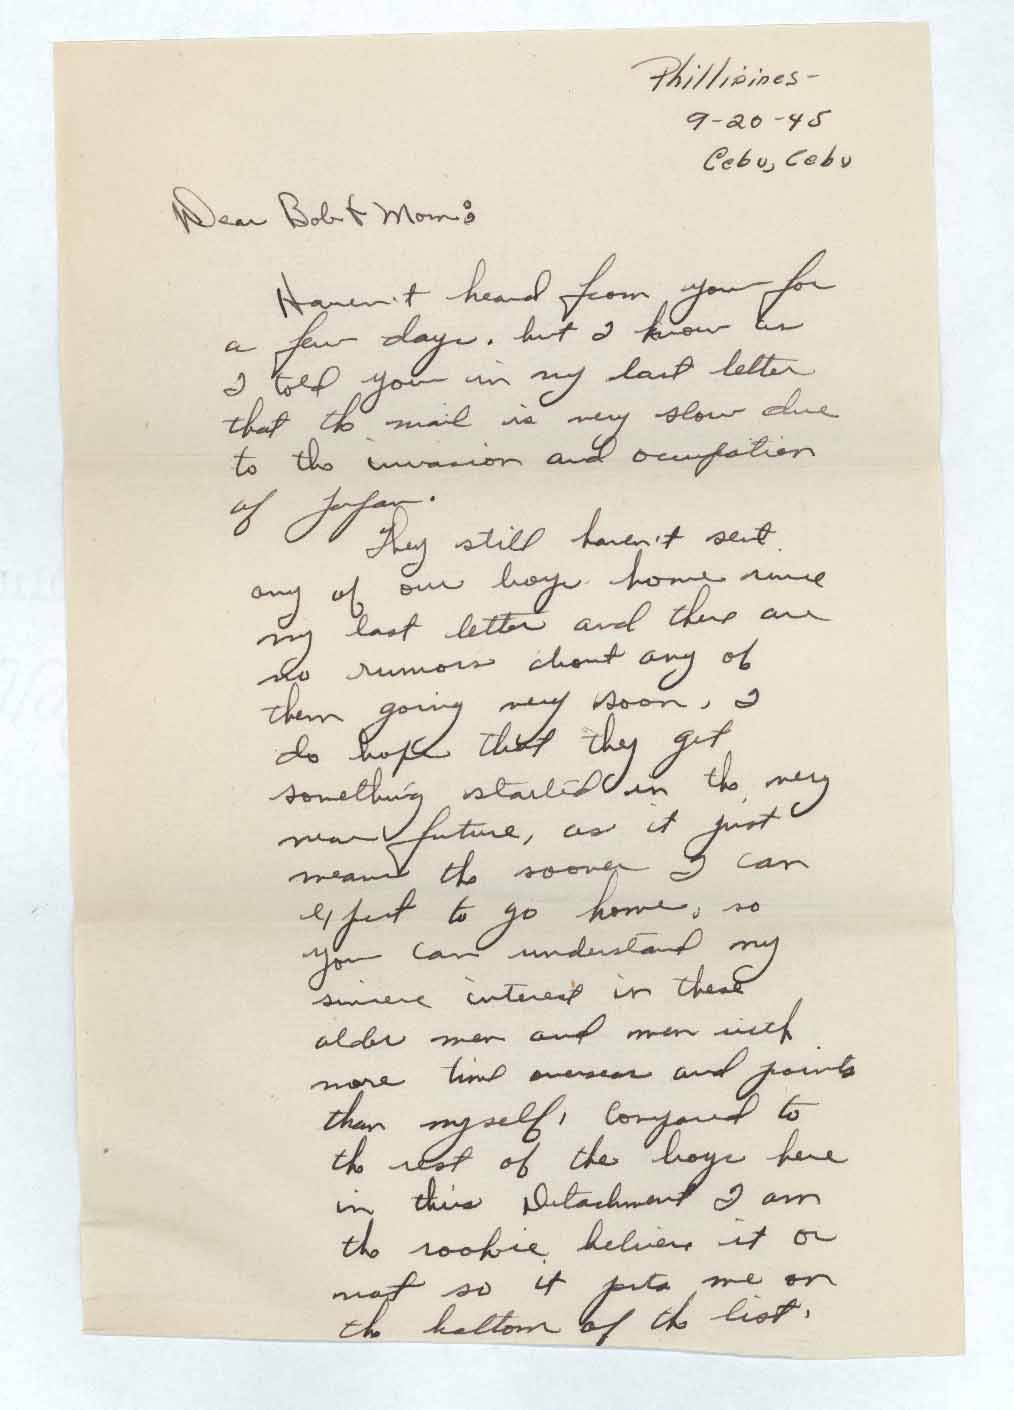 Phillipines-
9-20-45
Cebu, Cebu
Dear Bob & Mom:
Haven't heard from you for
a few days. but I know as
I told you in my last letter
that the mail is very slow due
to the invasion and occupation
of Japan.
They still haven't sent
any of our boys home since
my last letter and there are
no rumors about any of
them going very soon, I
do hope that they get
something started in the very
near future, as it just
means the sooner I can
expect to go home, so
you can understand my
sincere interest in these
older men and men with
more time overseas and points
than myself, Compared to
the rest of the boys here
in this Detachment I am
the rookie believe it or
not so it puts me on
the bottom of the list.